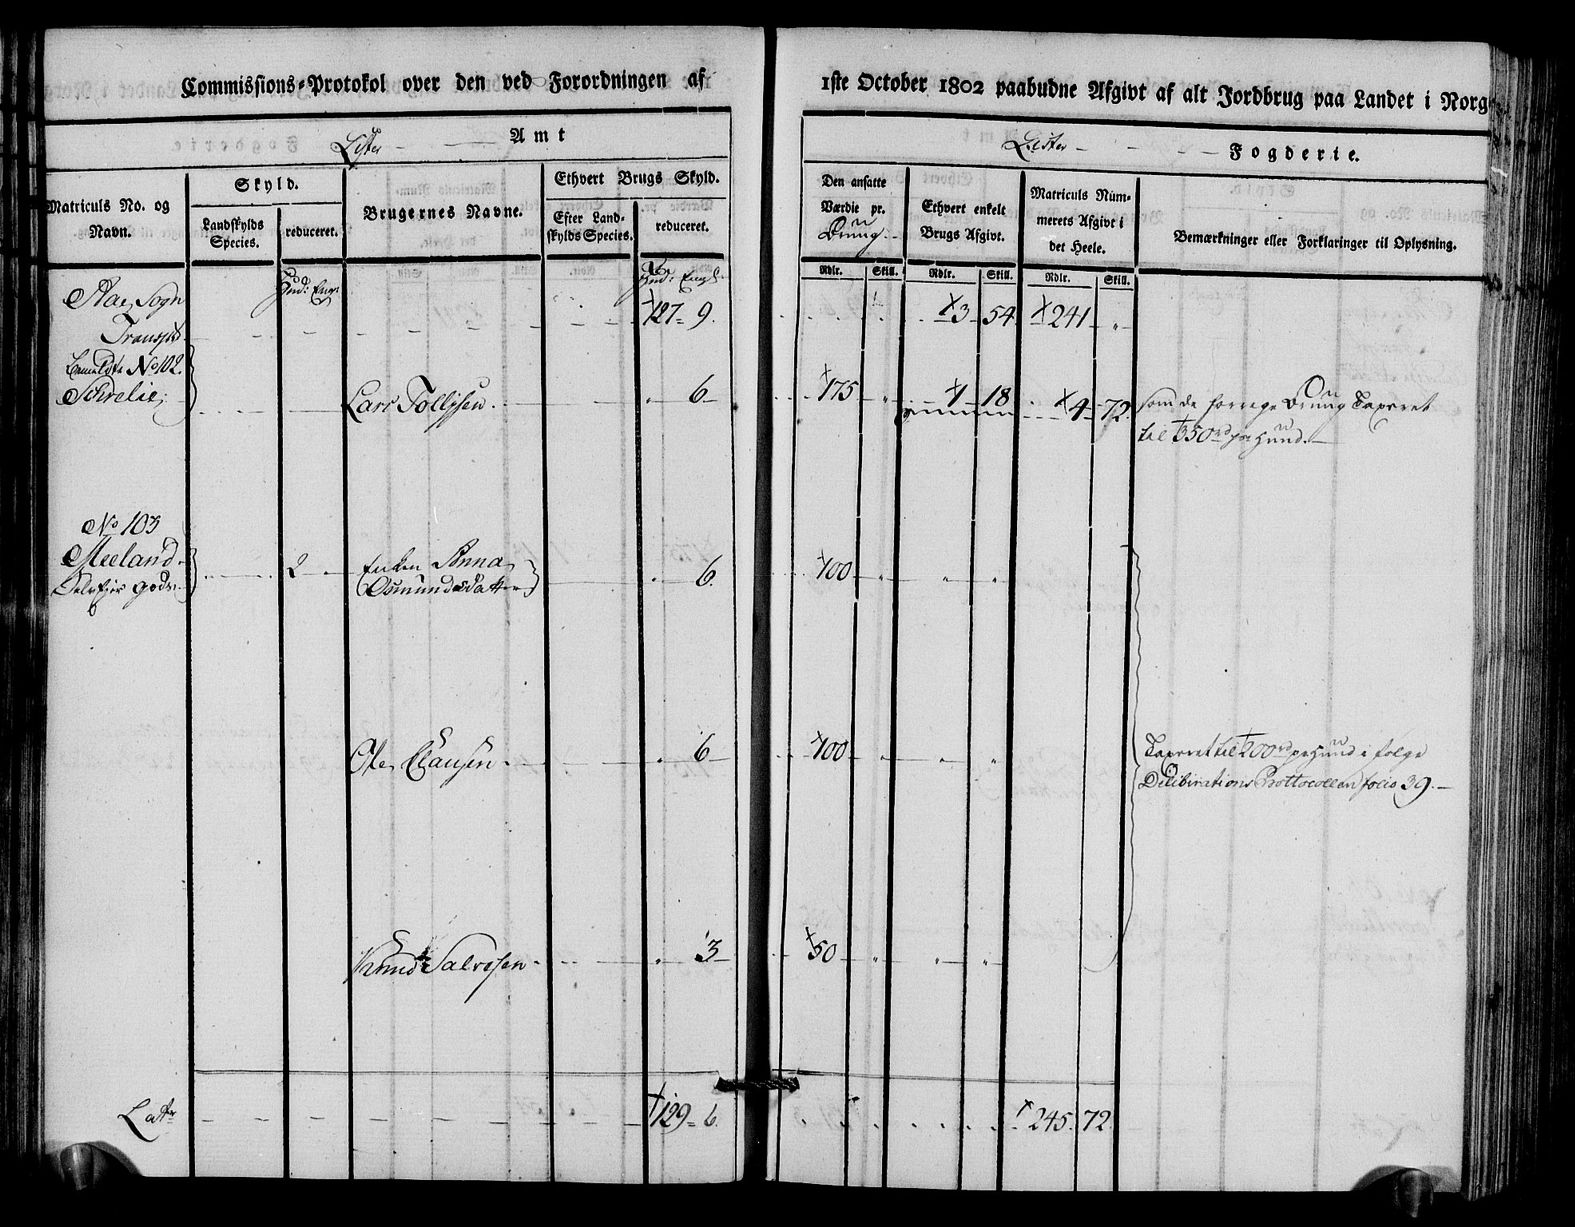 Commissions-Protokol over den ved Forordningen af 1ste October 1802 paabudne Afgivt af alt Jordbrug paa Landet i Norg
Lister Amt
Lister Fogderie.
Matriculs No. og Navn.
Skyld.
Landskylds Species.
reduceret.
Brugernes Navne.
Ethvert Brugs Skyld.
Efter Landskylds Species.
reduceret.
Den ansatte Værdie pr. Bruug.
Ethvert enkelt Brugs Afgivt.
Matriculs Nummerets Afgivt i det Heele.
Bemærkninger eller Forklaringer til Oplysning.
Hud: Eng:
Hud: Eng:
Rdlr. Skill. Rdlr. Skill. Rdlr. Skill.
Aae Sogn
Transpt. 127 9. 13 54. 241 "
No 102.
Lars Tollefsen. " 6 175 " 1 18 4 72. som de forrege Bruug Taxeret
til 350 rd pr Huud.
No 103
Meeland
gods. 2 Enken Anna
Osmundsdatter " 6. 100 " " "
Ole Clausen " 6 100 " " " Taxeret til 200 rd pr Huud i følge
Deliberations Prottocollen folio 39.
Knud Salvesen " 3 50 " " "
Latr 129 6. 245. 72.